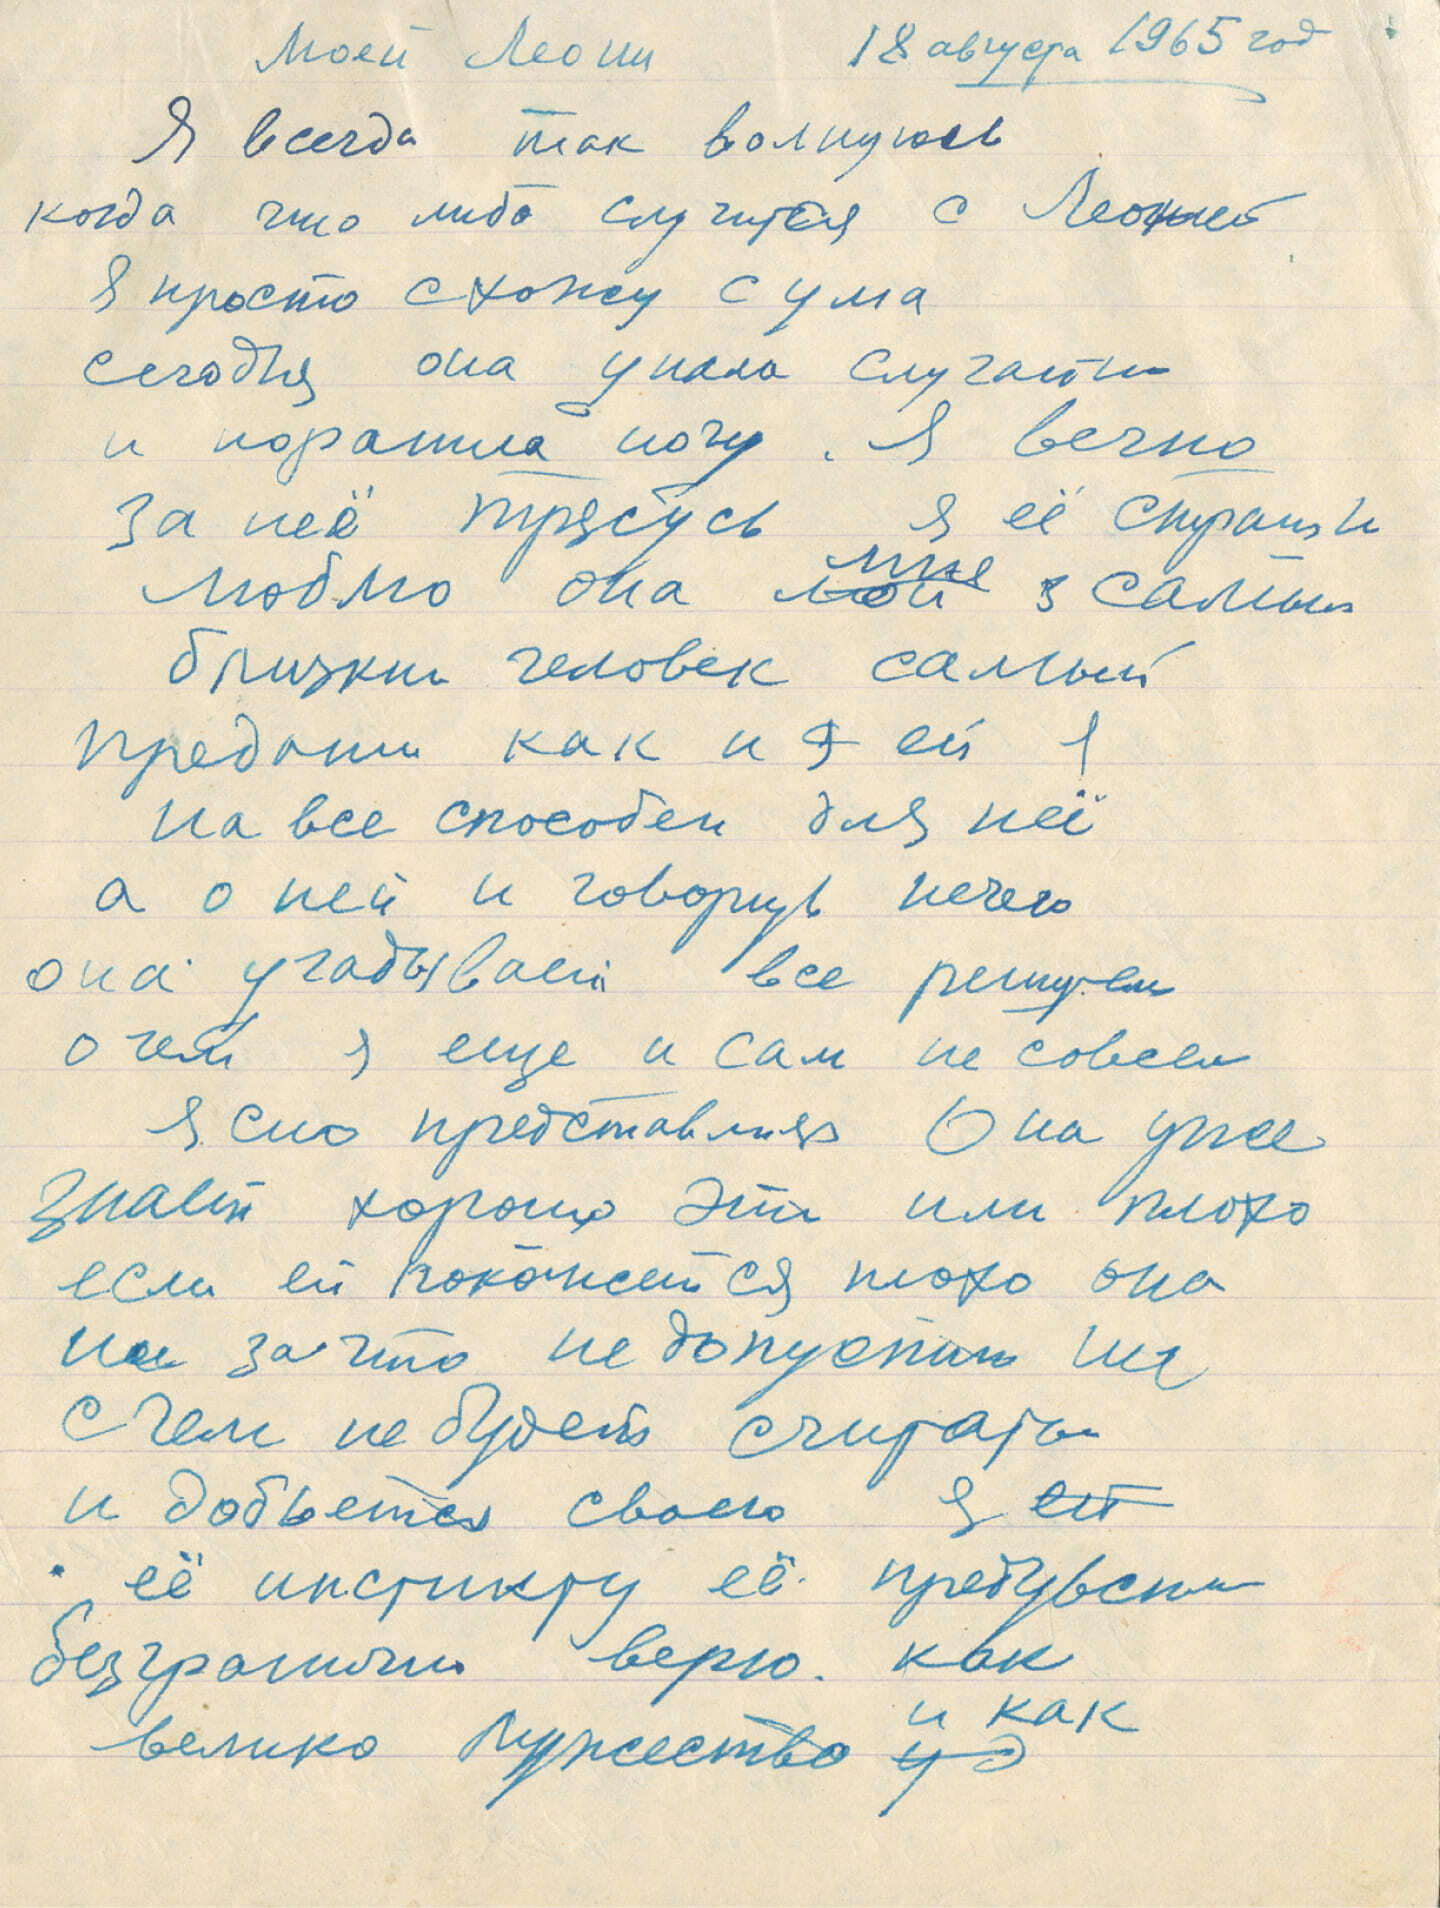 Моей Леони 18 августа 1965 год
Я всегда так волнуюсь
когда что либо случится с Леоней
Я просто схожу с ума
сегодня она упала случайно
и поранила ногу. Я вечно
за неё трясусь я её страшно
люблю она мне самый
близкий человек самый
преданный как и я ей я
на все способен для неё
а о ней и говорить нечего
она угадывает все
о чем я еще и сам не совсем
ясно представляю Она уже
знает хорошо это или плохо
если ей покажется плохо она
ни за что не допустит ни
с чем не будет считаться
и добьется своего я
её инстикту её предчувствию
безгранично верю. как
велико мужество и как